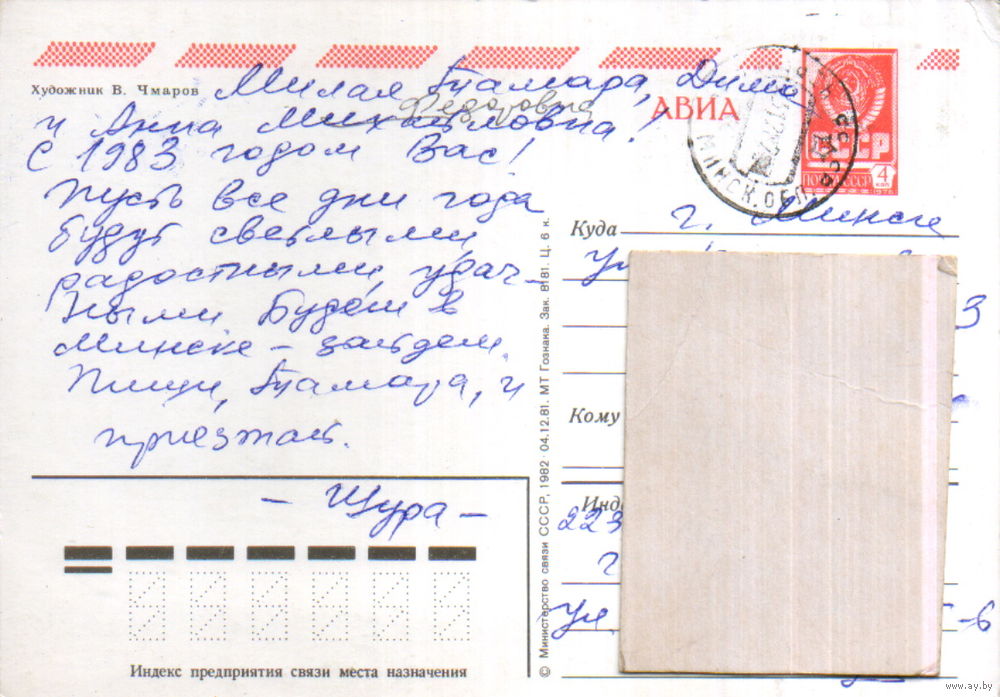 Художник В. Чмаров
Милая Тамара, Дима
Федоровна
и Анна Михайловна!
С 1983 годом Вас!
Пусть все дни года
будут светлыми
радостными удач-
ными Будем в
Минске – зайдем.
Пиши, Тамара, и
приезжай.
– Шура –
Индекс предприятия связи места назначения
© Министерство связи СССР, 1982 · 04.12.81. МТ Гознака. Зак. 8181. Ц. 6 к.
АВИА
СССР
ПОЧТА СССР
4 коп
МИНСК. ОБЛ.
Куда г. Минск
ул
3
Кому
Инд
223
г.
ул. -6
www.ay.by